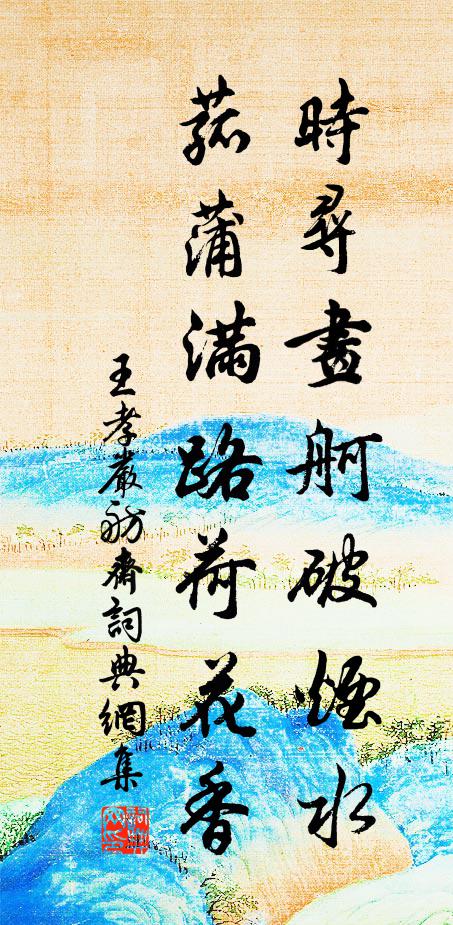 時尋畫舸破煙水
菰蒲滿路荷花香
王孝嚴舫齋詞典網集